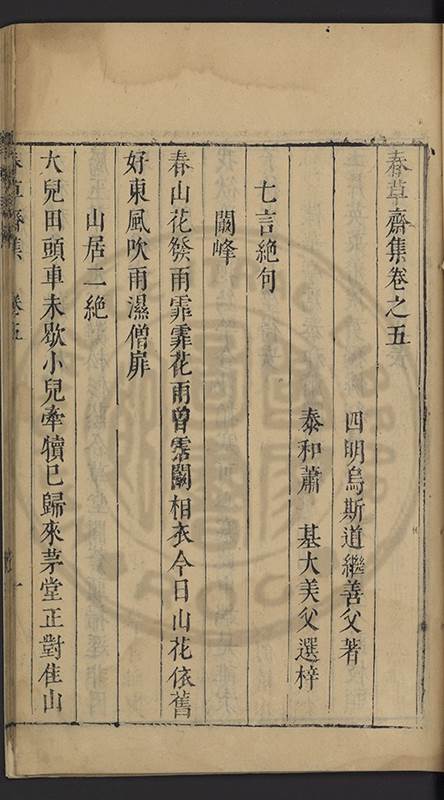 春草齋集卷之五
四明烏斯道繼善父著
泰和蕭 基大美父選梓
七言絶句
闞峰
春山花發雨霏霏花雨曾霑闞相衣今日山花依舊
好東風吹雨濕僧扉
山居二絶
大兒田頭車未歇小兒牽犢已歸來茅堂正對佳山
春草齋集 卷五 一